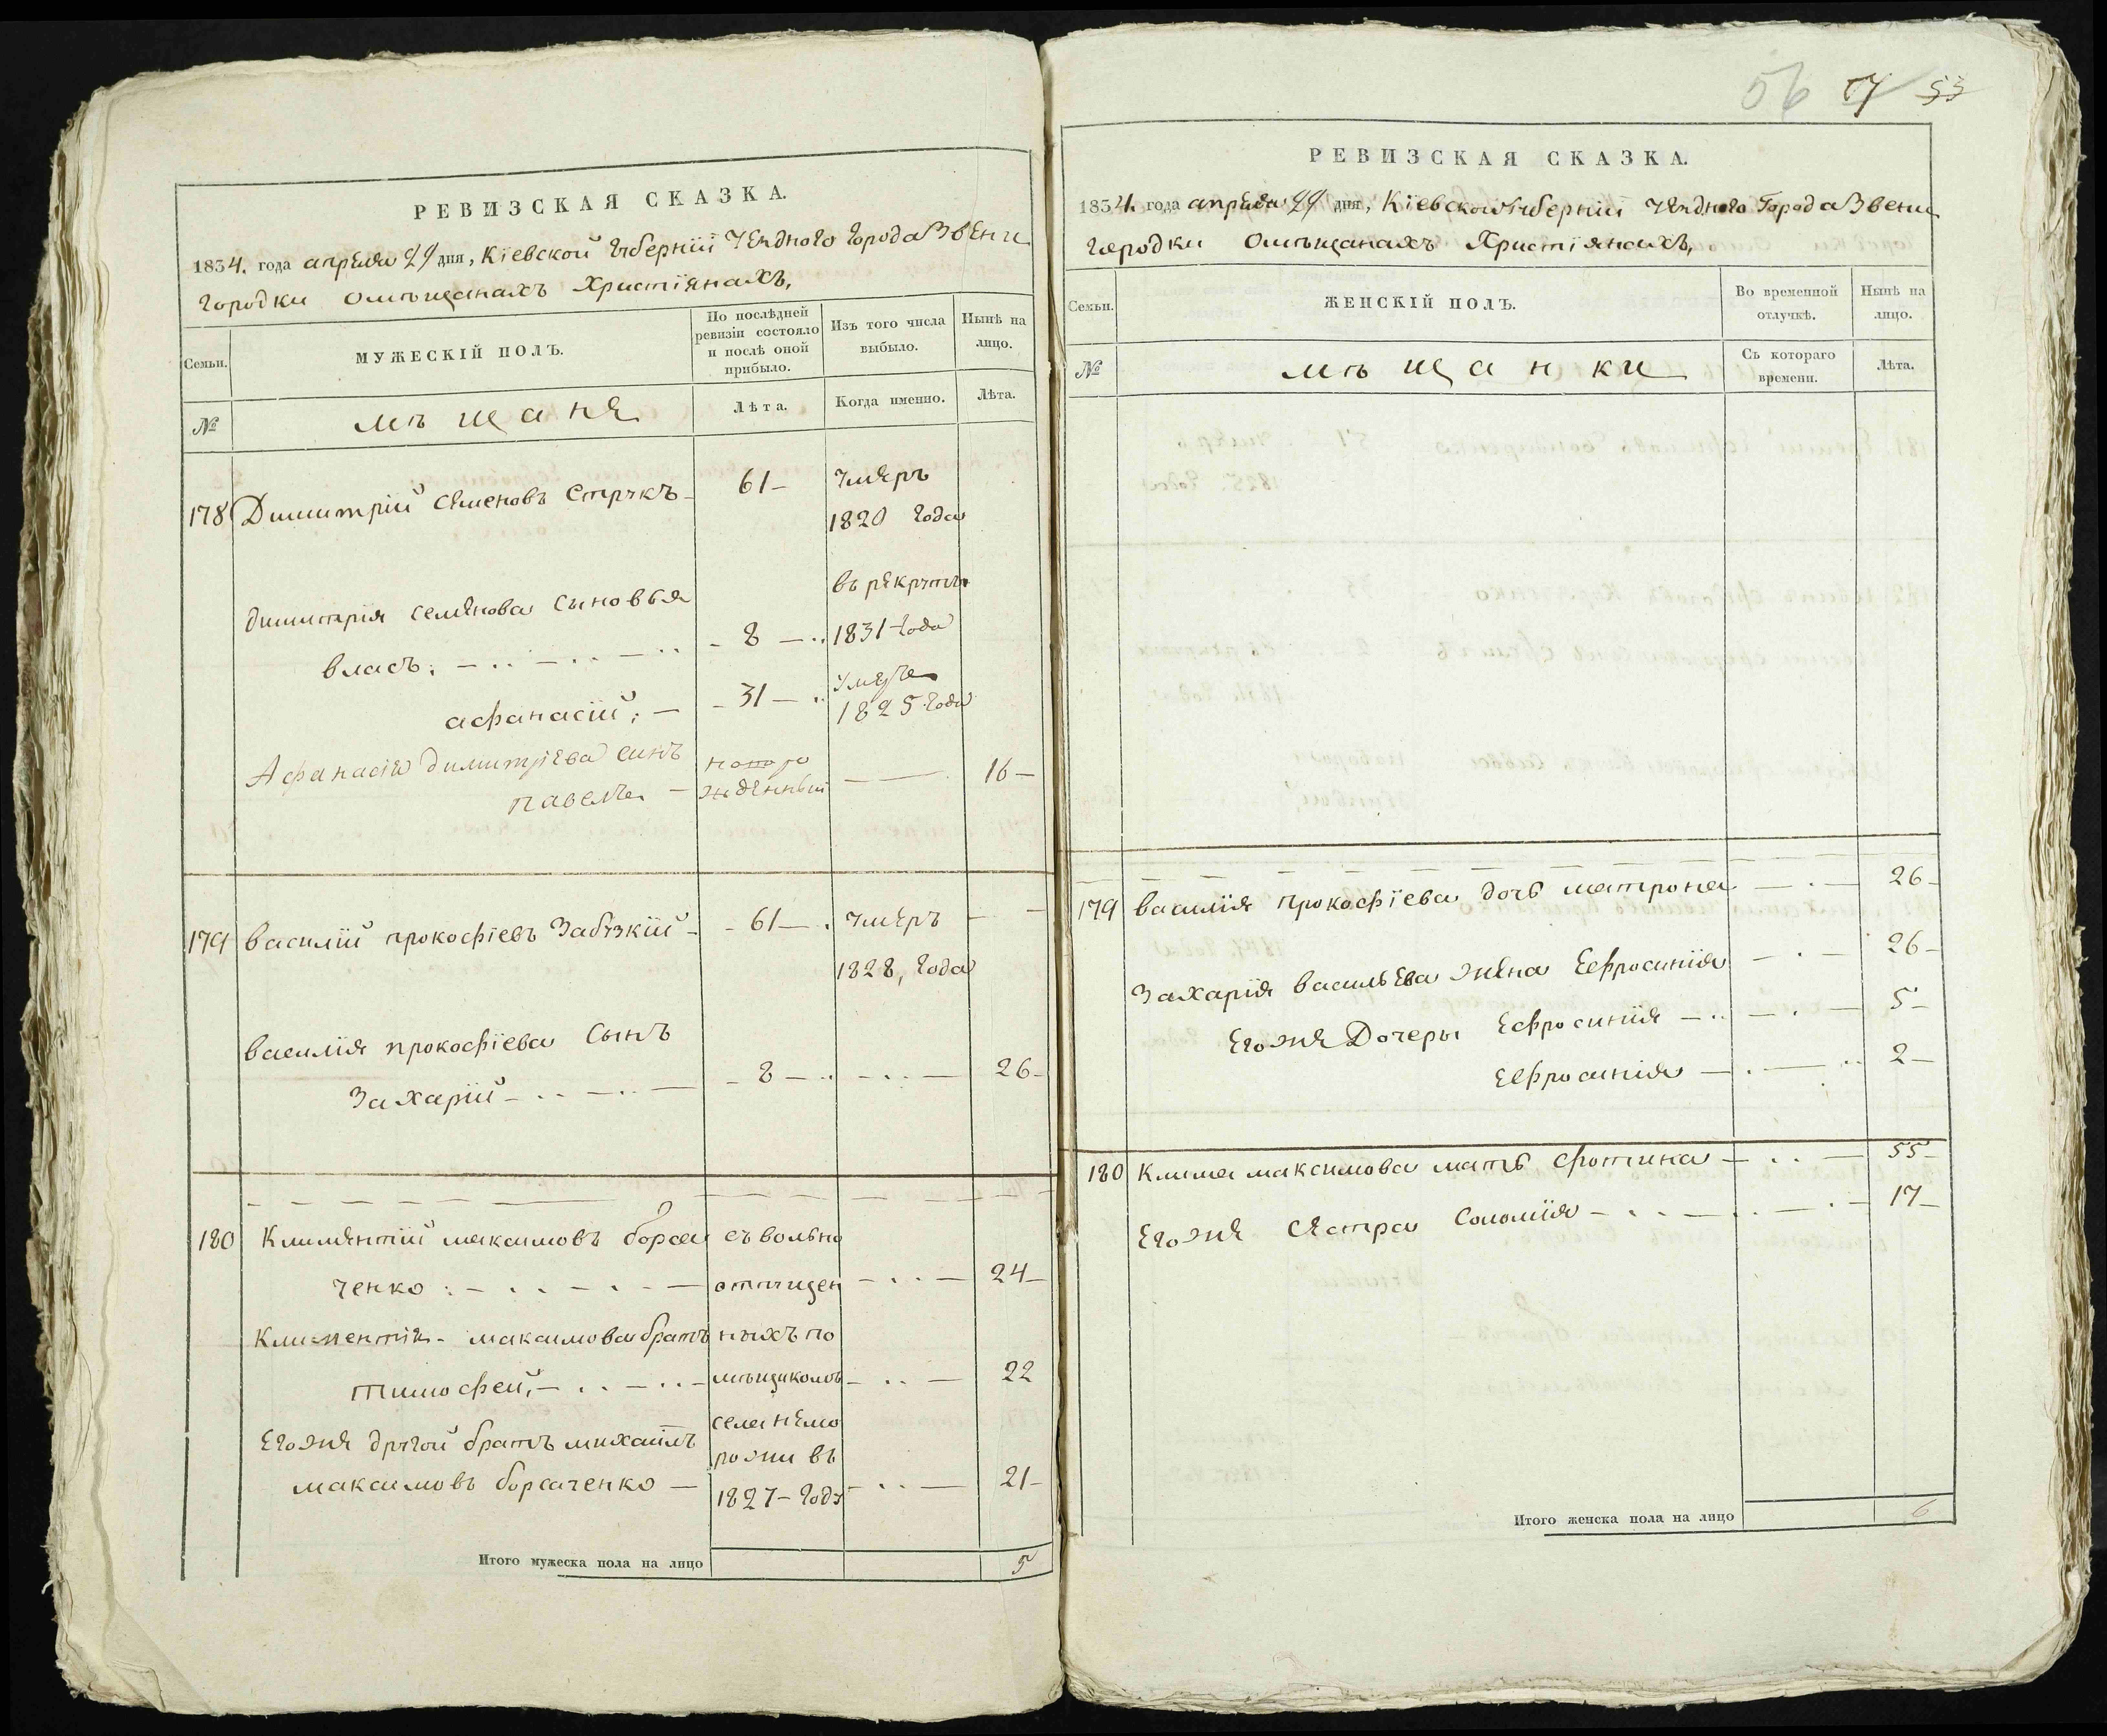 РЕВИЗСКАЯ СКАЗКА.
1834. года апреля 29 дня, Кіевской Губерніи Уезднаго Города Звени
городки Омѣщанахъ Христіянахъ,
Семьи.
МУЖЕСКІЙ ПОЛЪ.
По послѣдней
ревизіи состояло
и послѣ оной
прибыло.
Изъ того числа
выбыло.
Нынѣ на
лицо.
№
мѣщане
Лѣта.
Когда именно.
Лѣта.
178 Димитрій Семеновъ Струкъ - 61 - умеръ
1820 года
димитрія семенова сыновья въ рекруты
власъ: - 8 - 1831 года
афанасій; - 31 - умре
1825 года
Афанасія димитріева синъ новоро
павелъ - жденный - 16 -
179 василій прокофіевъ Забузкій - 61 - умеръ - -
1828, года
василія прокофіева Сынъ
Захарій - 8 - - 26 -
180 Климентій максимовъ борса съ вольно
ченко: - отпущен - 24 -
Климентія - максимова братъ ныхъ по
тимофей, - мѣщикомъ - 22
села немо
Егоже другой братъ михаилъ рожи въ
максимовъ борсаченко - 1827 - году - 21 -
Итого мужеска пола на лицо 5
56 57 53
РЕВИЗСКАЯ СКАЗКА.
1834. года апреля 29 дня, Кіевской Губерніи Уезднаго Города Звени
городки Омѣщанахъ Христіянахъ,
Семьи.
ЖЕНСКІЙ ПОЛЪ.
Во временной
отлучкѣ.
Нынѣ на
лицо.
№
мѣщанки
Съ котораго
времени.
Лѣта.
179 василія прокофіева дочь матрона - 26 -
Захарія васильева жена Ефросинія - 26 -
Егоже Дочеры Ефросинія - 5 -
Ефросинія - 2 -
180 Клима максимова мать фотина - 55 -
Егоже Сестра Соломія - 17 -
Итого женска пола на лицо 6